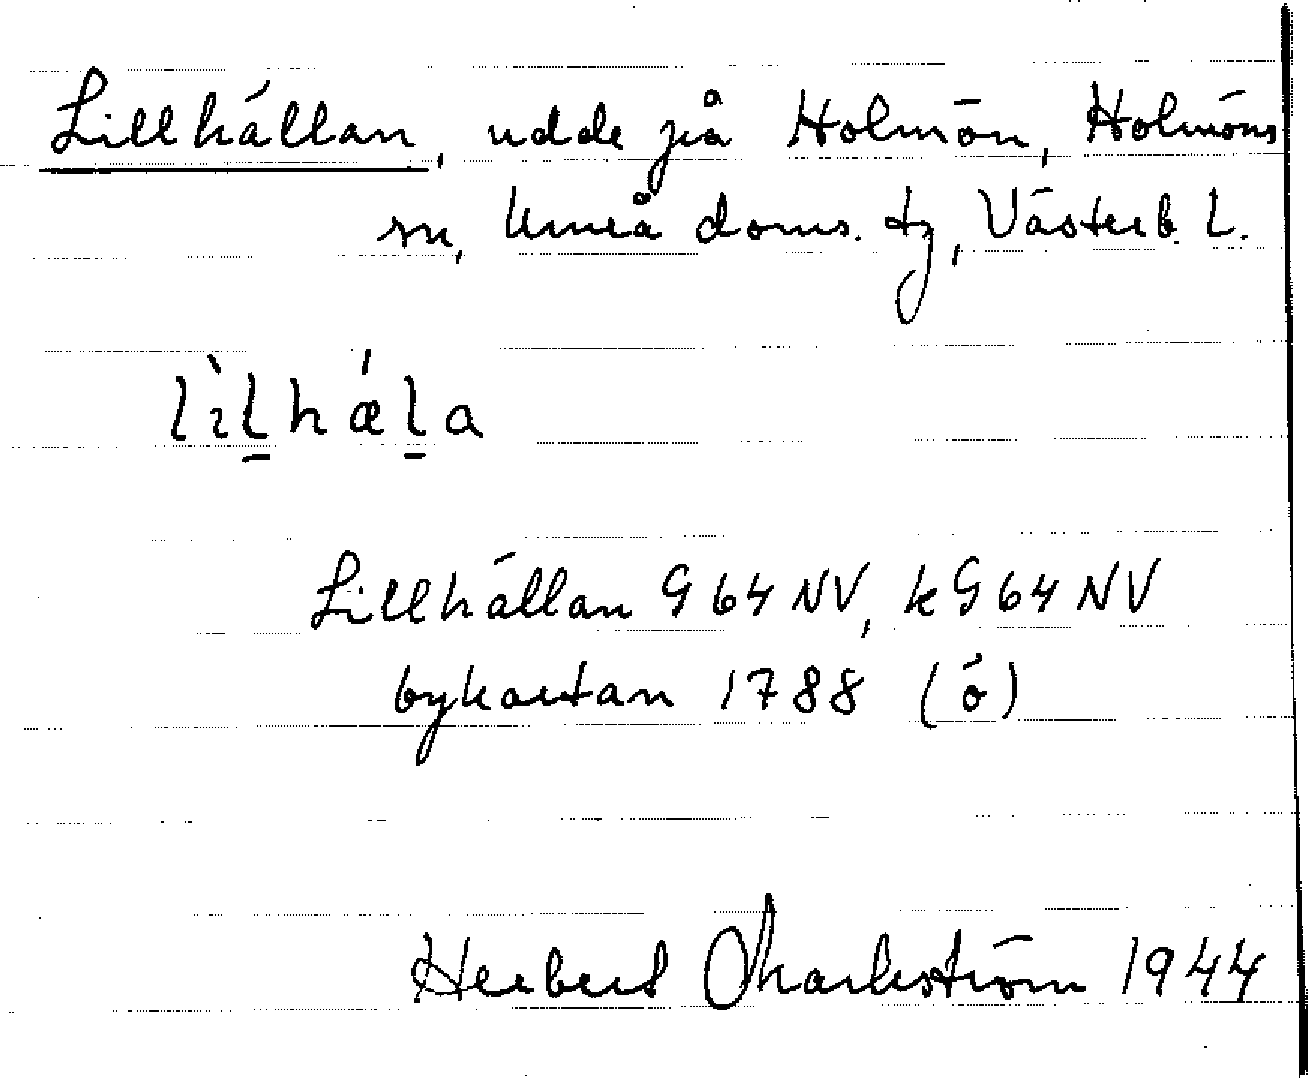 Lillhällan, udde på Holmön, Holmöns
sn, Umeå doms. tg, Västerb. L.
lìl̲hǽl̲a
Lillhällan G 64 NV, kG 64 NV
bykartan 1788 (ö)
Herbert Markström 1944